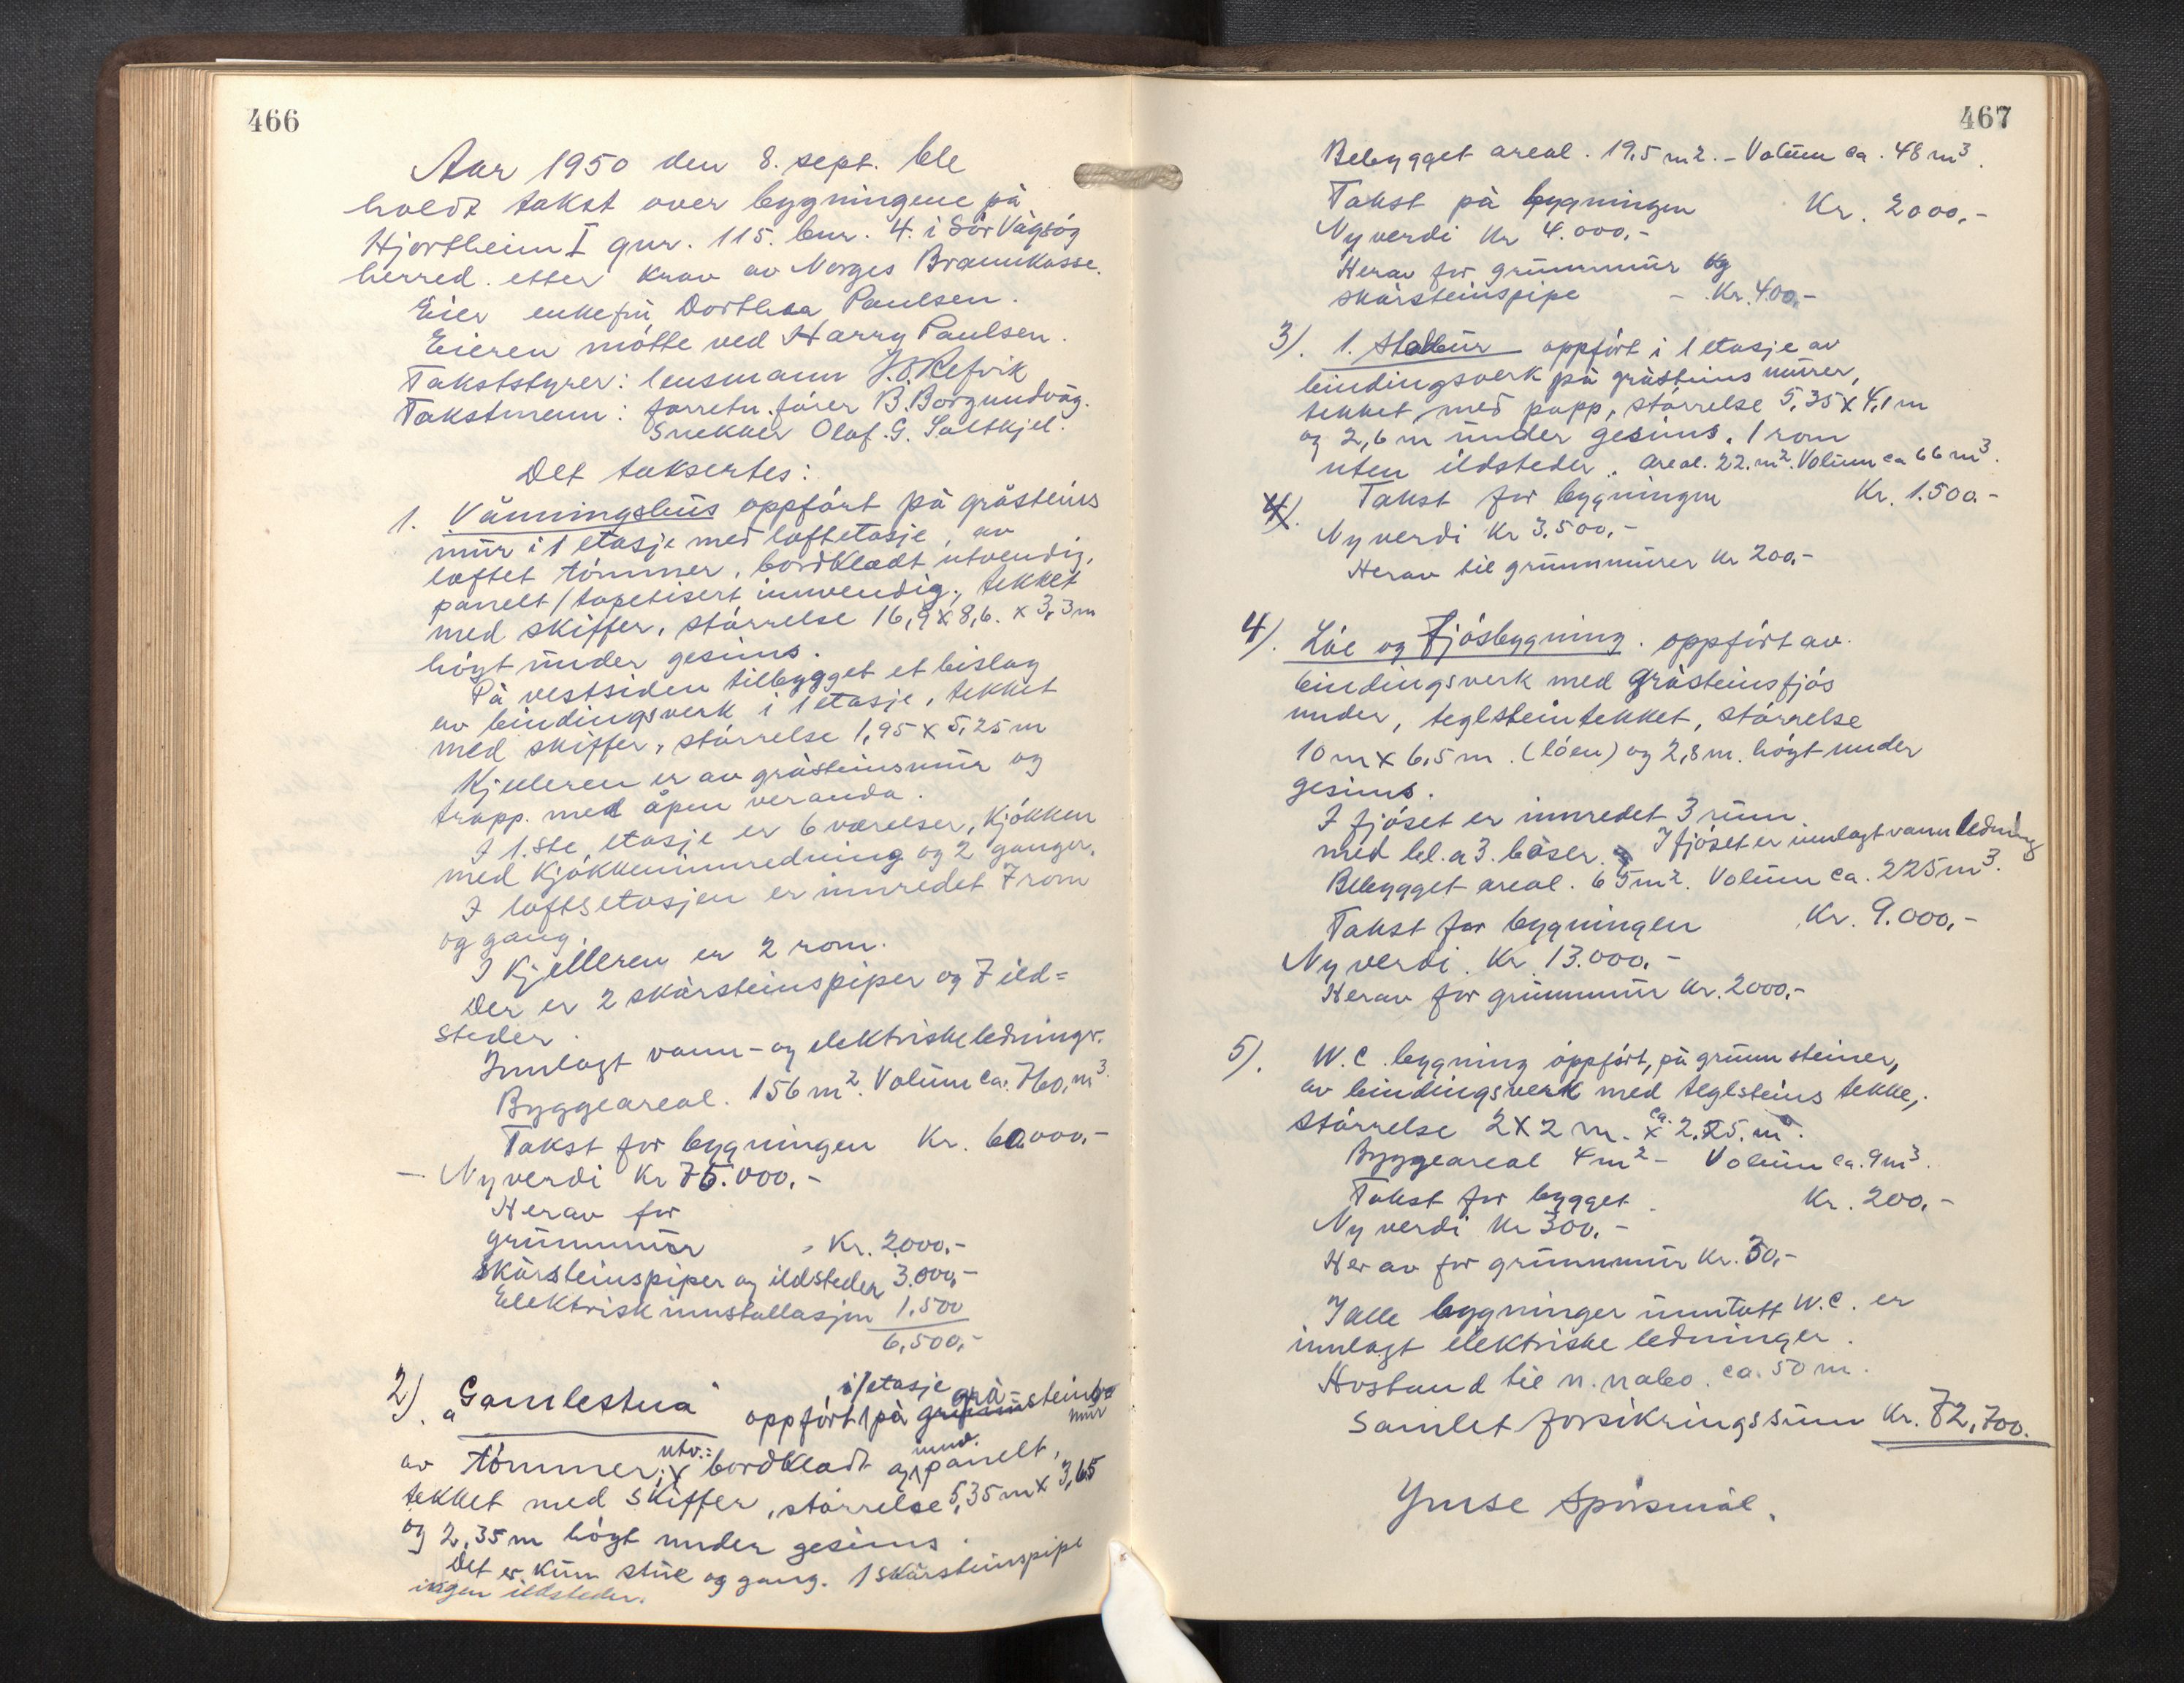 466
Aar 1950 den 8. sept. ble
holdt takst over bygningene på
Hjortheim I gnr. 115. bnr. 4. i Sör Vågsöy
herred. etter krav av Norges Brannkasse.
Eier enkefru Dorthea Paulsen.
Eieren mötte ved Harry Paulsen.
Takststyrer: lensmann J. O. Refvik
Takstmenn: forretn. förer B. Borgundvåg.
Snekker Olaf. G. Saltkjel.
Det taksertes:
1. Våningshus oppfört på gråsteins
mur i 1 etasje med loftetasje, av
loftet tömmer, bordkledt utvendig,
panelt/tapetisert innvendig, tekket
med skiffer, störrelse 16,9 x 8,6. x 3,3 m
högt under gesims.
På vestsiden tilbygget et bislag
av bindingsverk i 1 etasje, tekket
med skiffer, störrelse 1,95 x 5,25 m
Kjelleren er av gråsteinsmur og
trapp. med åpen veranda.
I 1.ste etasje er 6 værelser, kjökken
med kjökkeninnredning og 2 ganger.
I loftsetasjen er innredet 7 rom
og gang.
I kjelleren er 2 rom.
Der er 2 skårsteinspiper og 7 ild=
steder.
Innlagt vann- og elektriske ledninger.
Byggeareal. 156 m². Volum ca. 760, m³.
Takst for bygningen Kr. 60.000.-
- Nyverdi Kr 75.000.-
Herav for
grunnmur , Kr. 2000.-
skårsteinspiper og ildsteder 3.000,-
Elektrisk innstallasjon 1.500
6,500,-
2). "Gamlestua" oppfört i 1 etasje på grå-steins
mur
av tömmer, utv.: bordkledt og innv. panelt,
tekket med skiffer, störrelse 5,35 m x 3,65
og 2,35 m högt under gesims.
Det er kun stue og gang. 1 skårsteinspipe
ingen ildsteder.
467
Bebygget areal. 19,5 m2. - Volum ca. 48 m³.
Takst på bygningen Kr. 2000,-
Nyverdi Kr 4.000,-
Herav for grunnmur og
skårsteinspipe - Kr. 400,-
3). 1. Stabbur oppfört i 1 etasje av
bindingsverk på gråsteins murer,
tekket med papp, störrelse 5,35 x 4,1 m
og 2,6 m under gesims. 1 rom
uten ildsteder. Areal. 22. m². Volum ca 66 m³.
4). Takst for bygningen Kr. 1.500.-
Nyverdi Kr 3.500,-
Herav til grunnmurer Kr 200,-
4). Löe og fjösbygning. oppfört av
bindingsverk med gråsteinsfjös
under, teglsteintekket, störrelse
10 m x 6,5 m. (löen) og 2,8 m. högt under
gesims.
I fjöset er innredet 3 rum.
med bl. a 3. båser. I fjöset er innlagt vannledning
Bebygget areal. 65 m². Volum ca. 225 m³.
Takst for bygningen Kr. 9.000,-
Nyverdi. Kr 13.000.-
Herav for grunnmur Kr. 2000,-
5). W.C. bygning oppfört, på grunnsteiner,
av bindingsverk med teglsteins tekke,
störrelse 2 x 2 m. x ca. 2.25. m.
Byggeareal 4 m² - Volum ca. 9 m³.
Takst for bygget. Kr. 200,-
Nyverdi Kr 300.-
Herav for grunnmur Kr. 30,-
I alle bygninger unntatt W.C. er
innlagt elektriske ledninger.
Avstand til n. nabo. ca. 50 m.
Samlet forsikringssum Kr. 72,700.
Ymse Spörsmål.